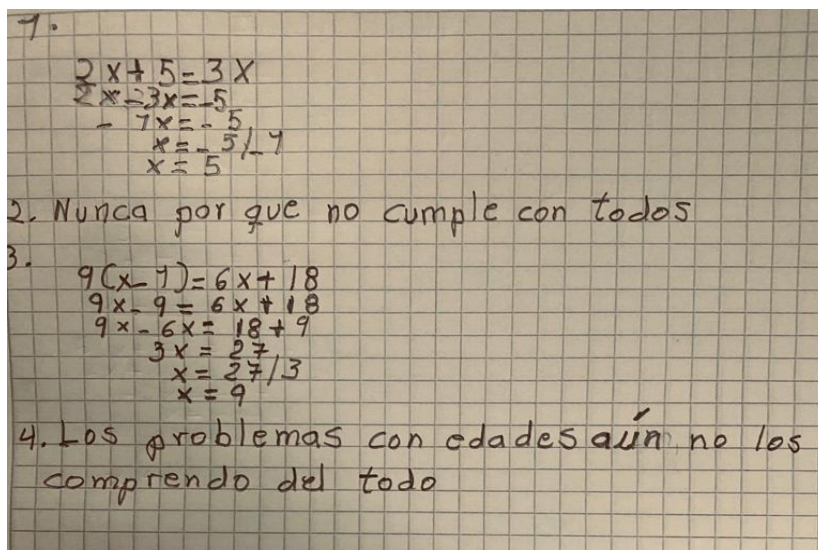 1.
2x+5=3x
2x-3x=-5
-1x=-5
x=-5/-1
x=5
2. Nunca por que no cumple con todos
3.
9(x-1)=6x+18
9x-9=6x+18
9x-6x=18+9
3x=27
x=27/3
x=9
4. Los problemas con edades aún no los
comprendo del todo